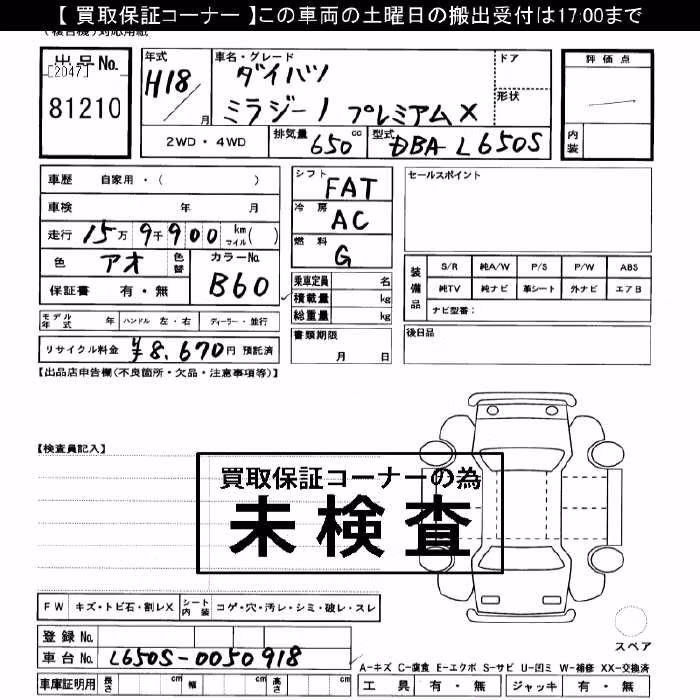 【 買取保証コーナー 】この車両の土曜日の搬出受付は17:00まで
(複合機)対応用紙
出品No.
[2047]
81210
年式
H18/
月
車名・グレード
ダイハツ
ミラジーノ プレミアムX
ドア
形状
2WD ・ 4WD
排気量
650 cc
型式
DBA-L650S
評価点
内装
車歴 自家用・( )
車検 年 月
走行 15万9千900 km マイル( )
色 アオ 色替
カラーNo.
B60
保証書 有・無
モデル年式 年 ハンドル 左・右 ディーラー・並行
リサイクル料金 ¥8,670円 預託済
シフト
FAT
冷房
AC
燃料
G
乗車定員 名
積載量 kg
総重量 kg
書類期限
月 日
セールスポイント
装備品
S/R 純A/W P/S P/W ABS
純TV 純ナビ 革シート 外ナビ エアB
ナビ型番:
後日品
【出品店申告欄(不良箇所・欠品・注意事項等)】
【検査員記入】
買取保証コーナーの為
未検査
FW キズ・トビ石・割レX シート内装 コゲ・穴・汚レ・シミ・破レ・スレ
登録No.
車台No. L650S-0050918
車庫証明用 長さ cm 幅 cm 高さ cm
スペア
A-キズ C-腐食 E-エクボ S-サビ U-凹ミ W-補修 XX-交換済
工具 有・無 ジャッキ 有・無